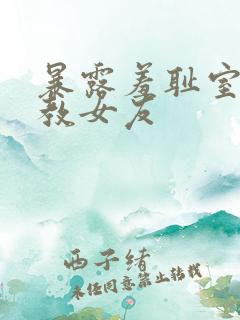 暴露羞耻室
教女友
西子绪
未经同意禁止转载